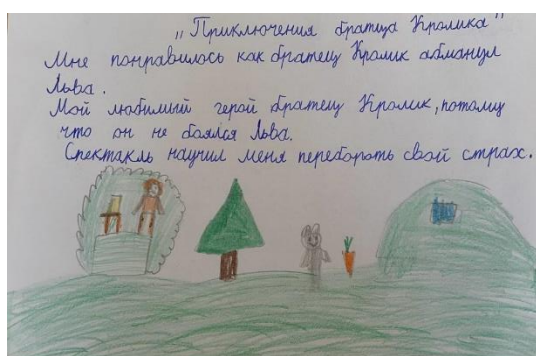 „Приключения братца Кролика"
Мне понравилось как братец Кролик абманул
Льва.
Мой любимый герой братец Кролик, потому
что он не боялся Льва.
Спектакль научил меня перебороть свой страх.